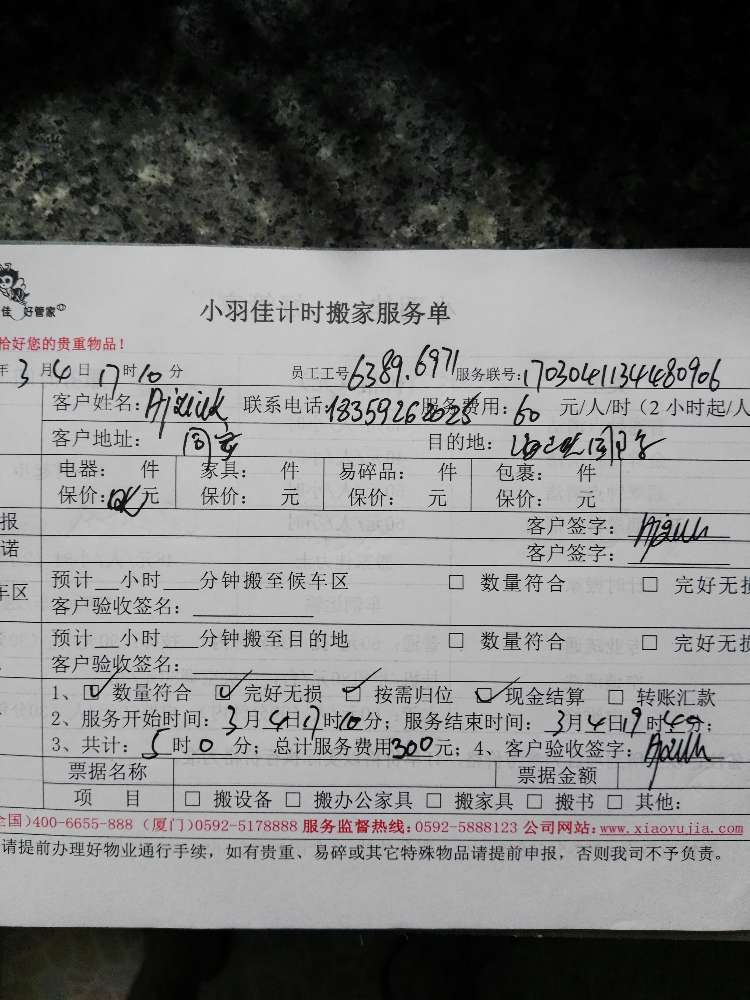 佳 好管家
小羽佳计时搬家服务单
恰好您的贵重物品！
年 3 月 4 日 17 时 10 分 员工工号 6389.6971 服务联号：17030411344480906
客户姓名： 联系电话：18359262025 服务费用：60 元/人/时（2小时起/人
客户地址： 目的地：
电器： 件 家具： 件 易碎品： 件 包裹： 件
保价： 元 保价： 元 保价： 元 保价： 元
报 客户签字：
诺 客户签字：
车区 预计__小时__分钟搬至候车区 □ 数量符合 □ 完好无损
客户验收签名：
预计__小时__分钟搬至目的地 □ 数量符合 □ 完好无损
客户验收签名：
1、☑ 数量符合 ☑ 完好无损 ☑ 按需归位 ☑ 现金结算 □ 转账汇款
2、服务开始时间：3 月 4 日 17 时 10 分；服务结束时间：3 月 4 日 19 时 40 分；
3、共计：5 时 0 分；总计服务费用 300 元；4、客户验收签字：
票据名称 票据金额
项 目 □ 搬设备 □ 搬办公家具 □ 搬家具 □ 搬书 □ 其他：
全国)400-6655-888（厦门)0592-5178888 服务监督热线：0592-5888123 公司网站：www.xiaoyujia.com
请提前办理好物业通行手续，如有贵重、易碎或其它特殊物品请提前申报，否则我司不予负责。